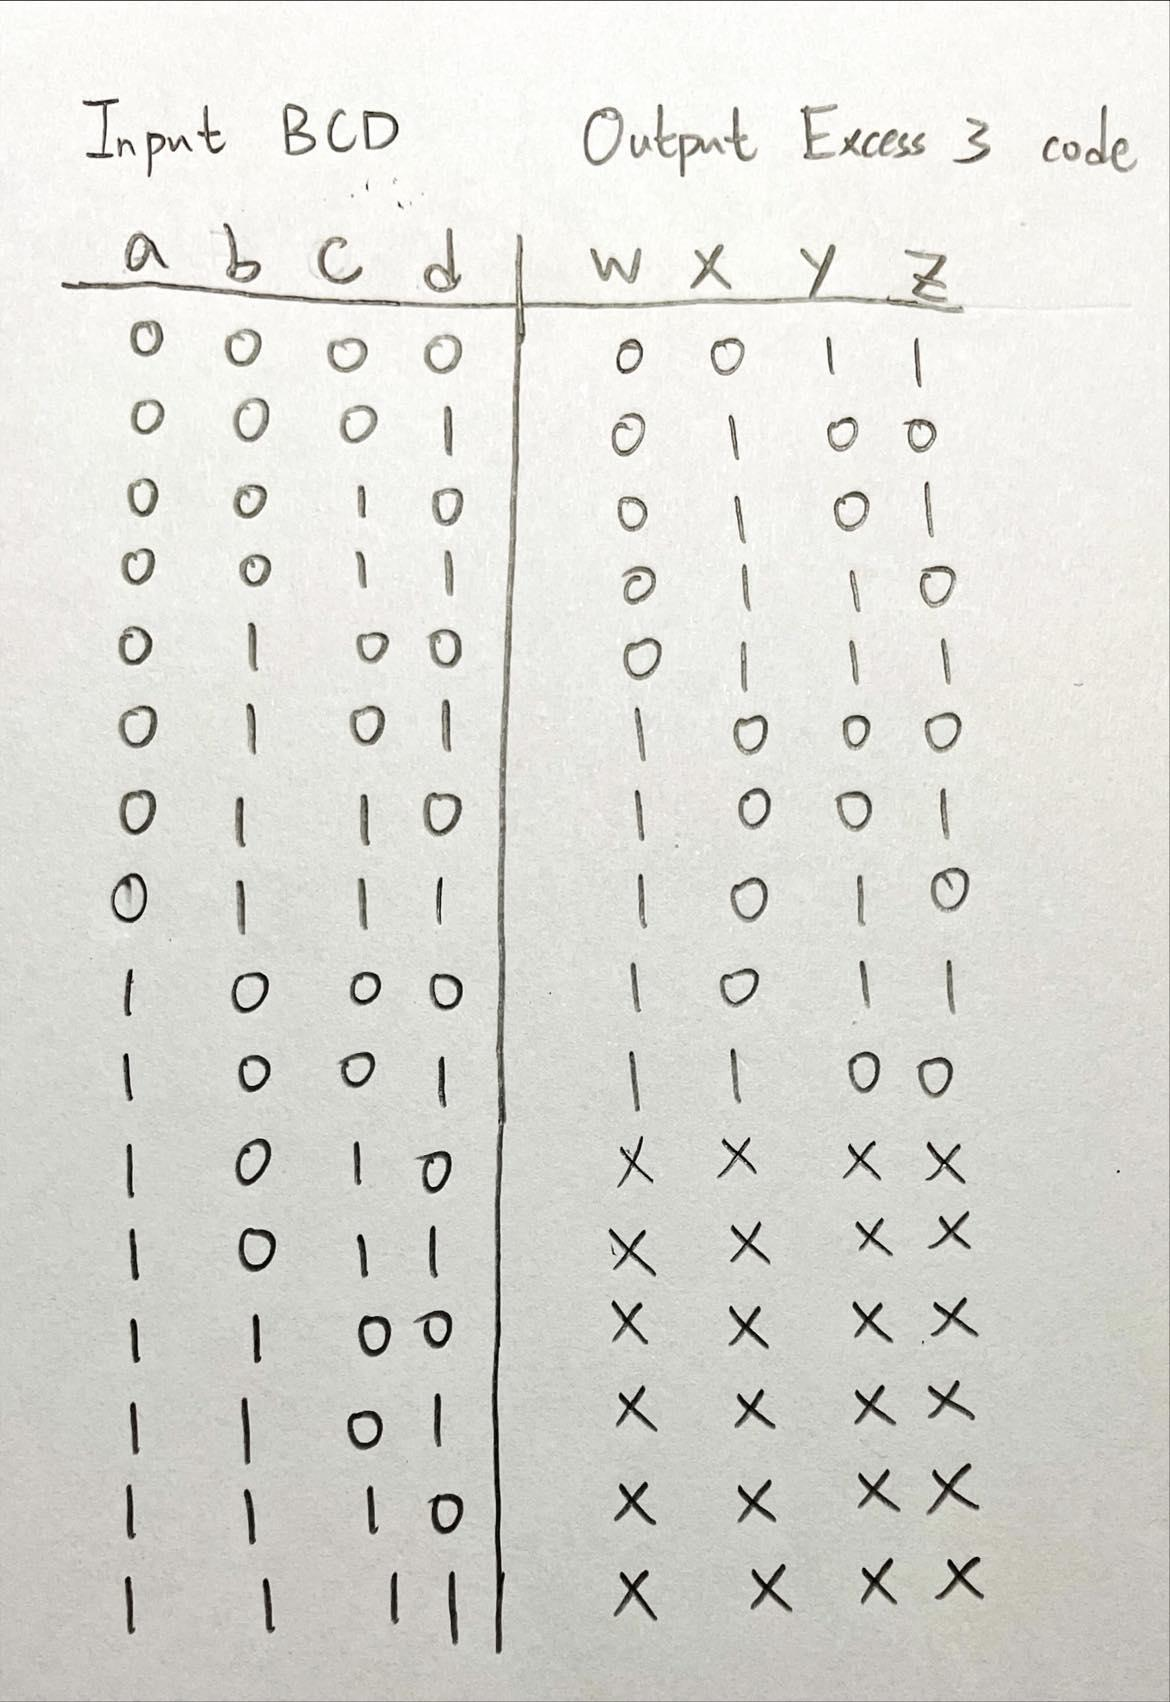 Input BCD Output Excess 3 code
a b c d w x y z
0 0 0 0 0 0 1 1
0 0 0 1 0 1 0 0
0 0 1 0 0 1 0 1
0 0 1 1 0 1 1 0
0 1 0 0 0 1 1 1
0 1 0 1 1 0 0 0
0 1 1 0 1 0 0 1
0 1 1 1 1 0 1 0
1 0 0 0 1 0 1 1
1 0 0 1 1 1 0 0
1 0 1 0 x x x x
1 0 1 1 x x x x
1 1 0 0 x x x x
1 1 0 1 x x x x
1 1 1 0 x x x x
1 1 1 1 x x x x